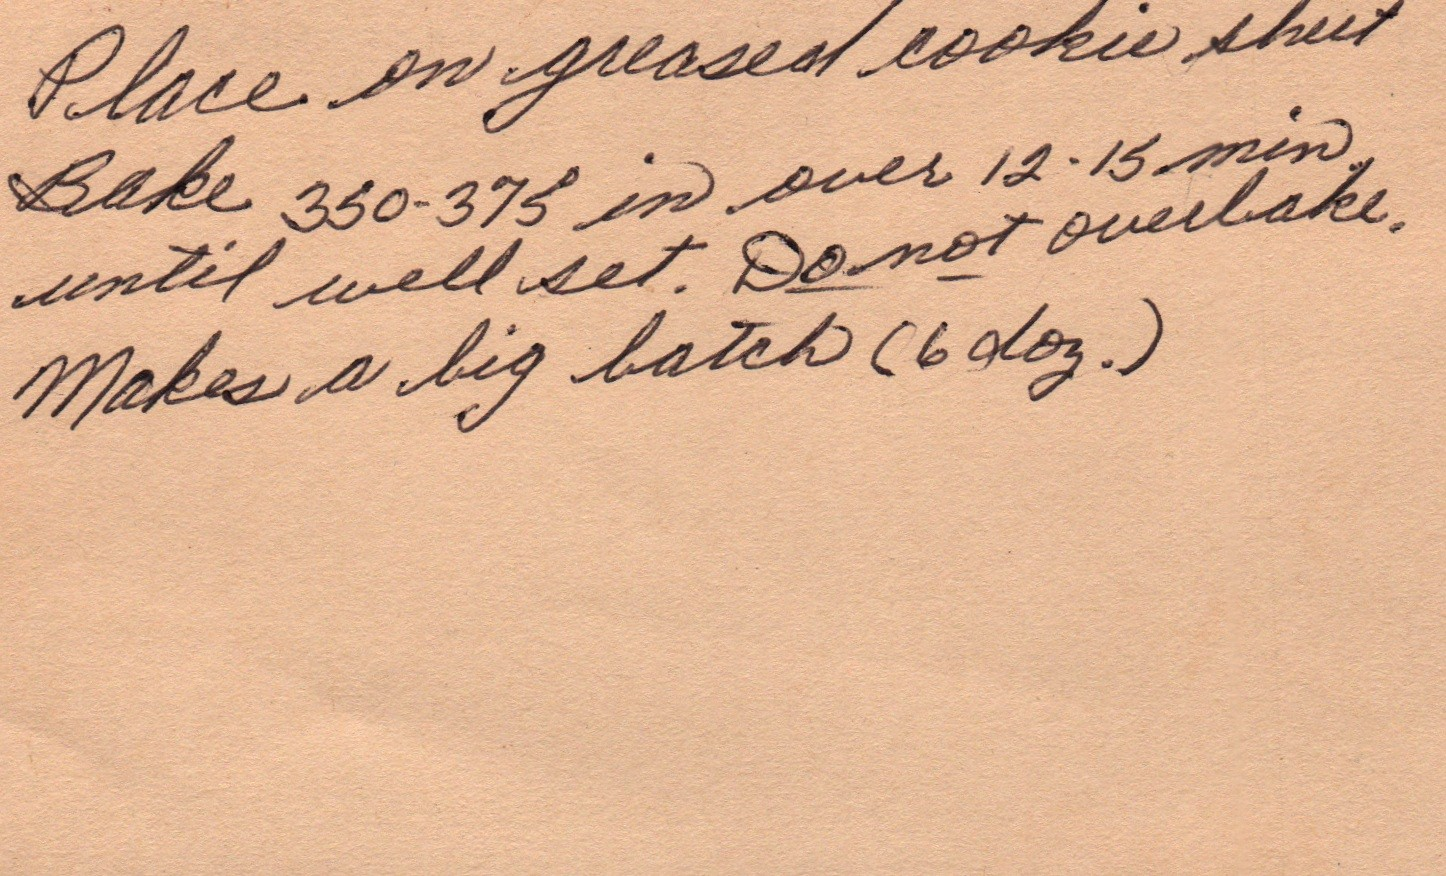 Place on greased cookie sheet
Bake 350-375 in over 12-15 min.
until well set. Do not overbake.
Makes a big batch (6 doz.)